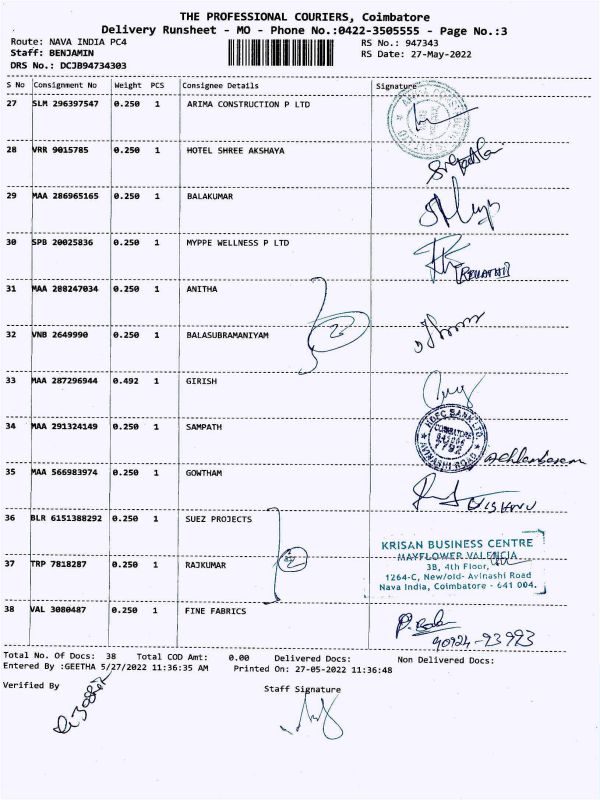 THE PROFESSIONAL COURIERS, Coimbatore
Delivery Runsheet - MO - Phone No.:0422-3505555 - Page No.:3
Route: NAVA INDIA PC4
Staff: BENJAMIN
DRS No.: DCJB94734303
RS No.: 947343
RS Date: 27-May-2022
S No Consignment No Weight PCS Consignee Details Signature
27 SLM 296397547 0.250 1 ARIMA CONSTRUCTION P LTD
28 VRR 9015785 0.250 1 HOTEL SHREE AKSHAYA
29 MAA 286965165 0.250 1 BALAKUMAR
30 SPB 20025836 0.250 1 MYPPE WELLNESS P LTD
REVATHI
31 MAA 288247034 0.250 1 ANITHA
2
32 VNB 2649990 0.250 1 BALASUBRAMANIYAM
33 MAA 287296944 0.492 1 GIRISH
34 MAA 291324149 0.250 1 SAMPATH
HDFC BANK LTD
COIMBATORE
AVINASHI ROAD
35 MAA 566983974 0.250 1 GOWTHAM
VISHNU
36 BLR 6151388292 0.250 1 SUEZ PROJECTS
2
KRISAN BUSINESS CENTRE
MAYFLOWER VALENCIA
37 TRP 7818287 0.250 1 RAJKUMAR
3B, 4th Floor,
1264-C, New/old- Avinashi Road
Nava India, Coimbatore - 641 004.
38 VAL 3080487 0.250 1 FINE FABRICS
P. Bala
90924-93993
Total No. Of Docs: 38 Total COD Amt: 0.00 Delivered Docs: Non Delivered Docs:
Entered By :GEETHA 5/27/2022 11:36:35 AM Printed On: 27-05-2022 11:36:48
Verified By
Staff Signature